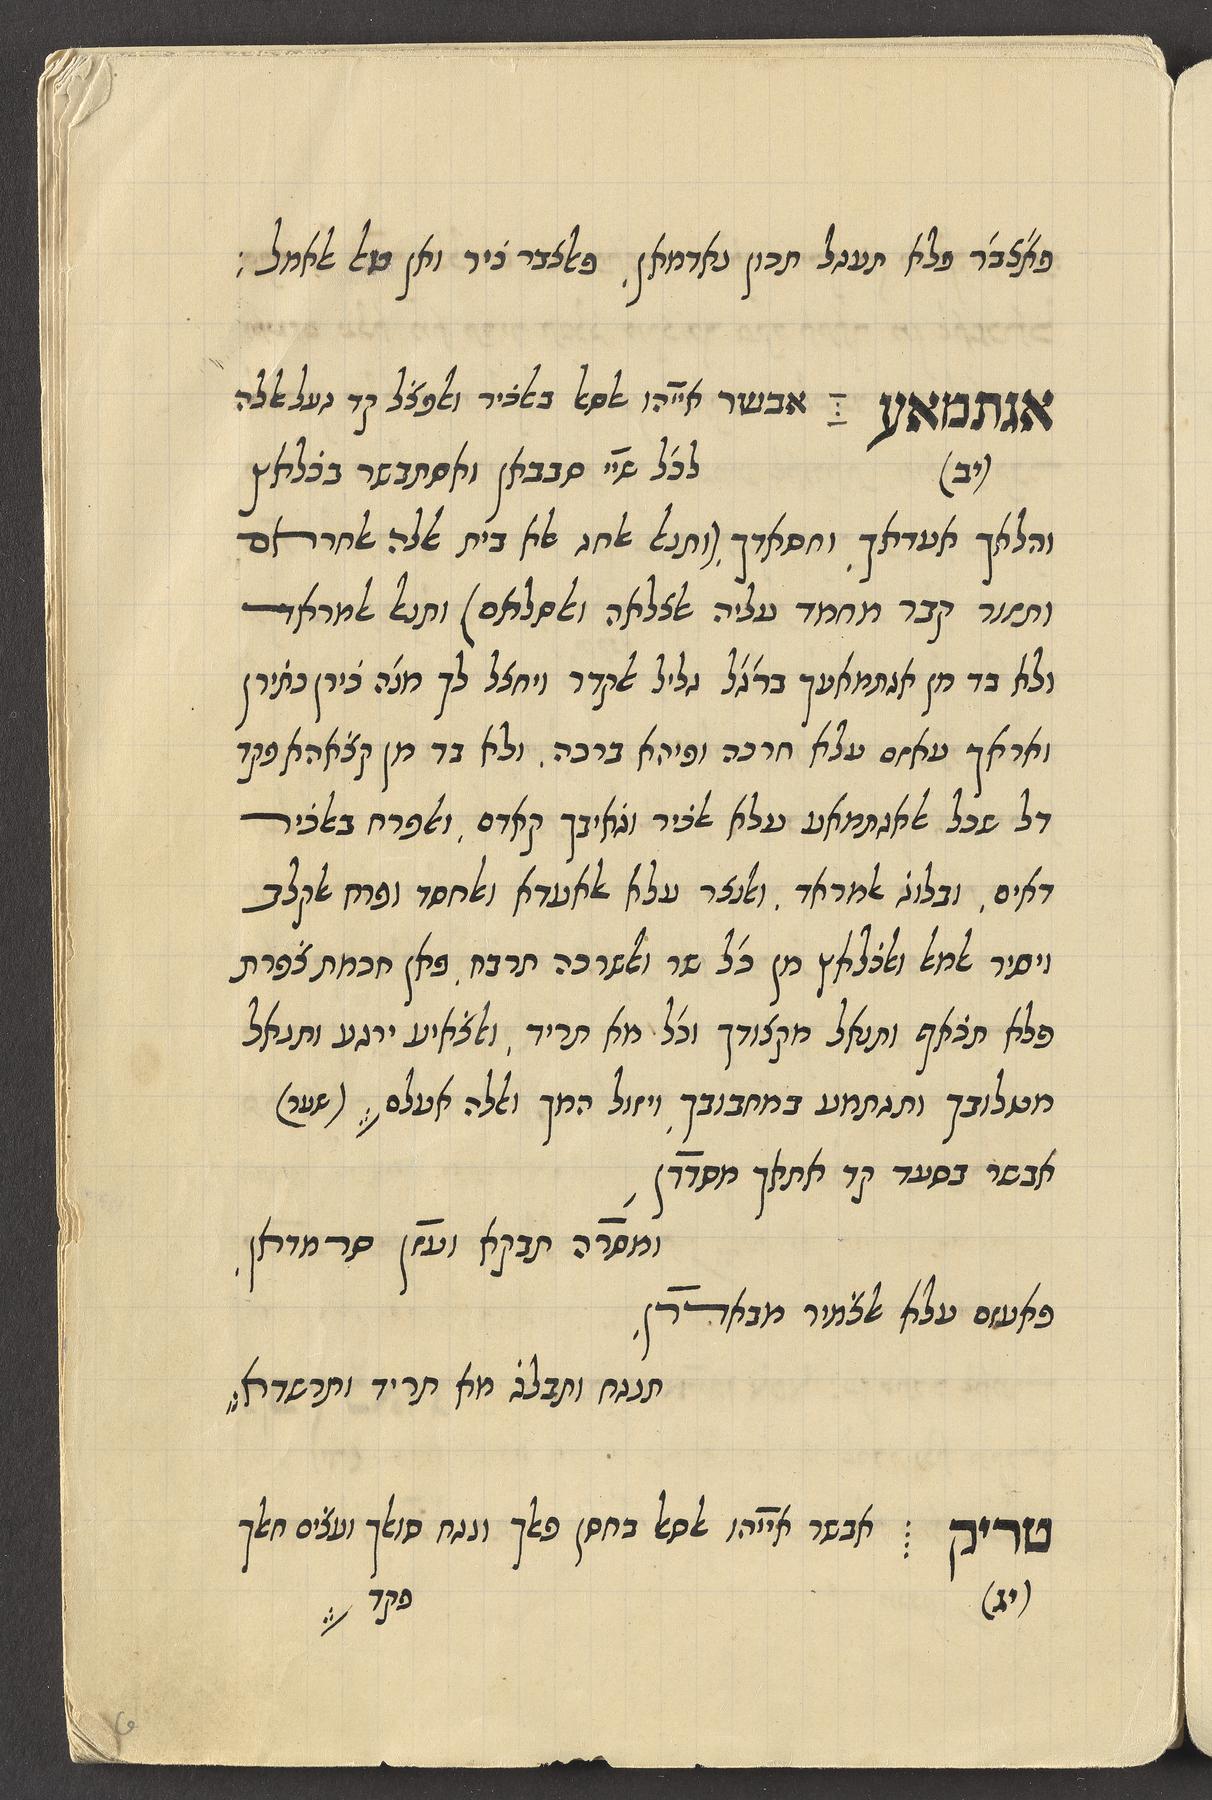 פאצבר פלא תעגל תכון נאדמאן, פאלצבר כ̇יר ואן טאל אלאמל :
אגתמאע ⁝ אבשר אייהו אלסאל באלכ̇יר ואלפצ̇ל קד געל אללה
(יב) לכל שיי סבבאן ואסתבשר בכ̇לאץ
והלאך אעדאך, וחסאדך, (ותנאל אלחג אלא בית אללה אלחראם
ותזור קבר מחמד עליה אלצלאה ואלסלאם) ותנאל אלמראד
ולא בד מן אגתמאעך ברגל גליל אלקדר ויחצל לך מנה כ̇ירן כתירן
ואראך עאזם עלא חרכה ופיהא ברכה, ולא בד מן קצ̇אהא פקד
דל שכל אלאגתמאע עלא אלכ̇יר וגאיבך קאדם, ואלפרח באלכ̇יר
דאים, ובלוג אלמראד, ואלנצר עלא אלאעדא ואלחסד ופרח אלקלב
ויסיר אלמא ואלכ̇לאץ מן כל שר ואלשרכה תרבח, פאן חכמת צ̇פרת
פלא תכ̇אף ותנאל מקצודך וכל מא תריד, ואלצ̇איע ירגע ותנאל
מטלובך ותגתמע במחבובך, ויזול המך ואללה אעלם (שער)
אבשר בסעד קד אתאך מסדדן,
ומסרה תבקא ועזן סרמדאן,
פאעזם עלא אלצ̇מיר מבאדרן,
תנגח ותבלג מא תריד ותרשדא
טריק ⁝ אבשר אייהו אלסאל בחסן פאלך ונגח סואלך ועצ̇ים חאלך
(יג) פקד